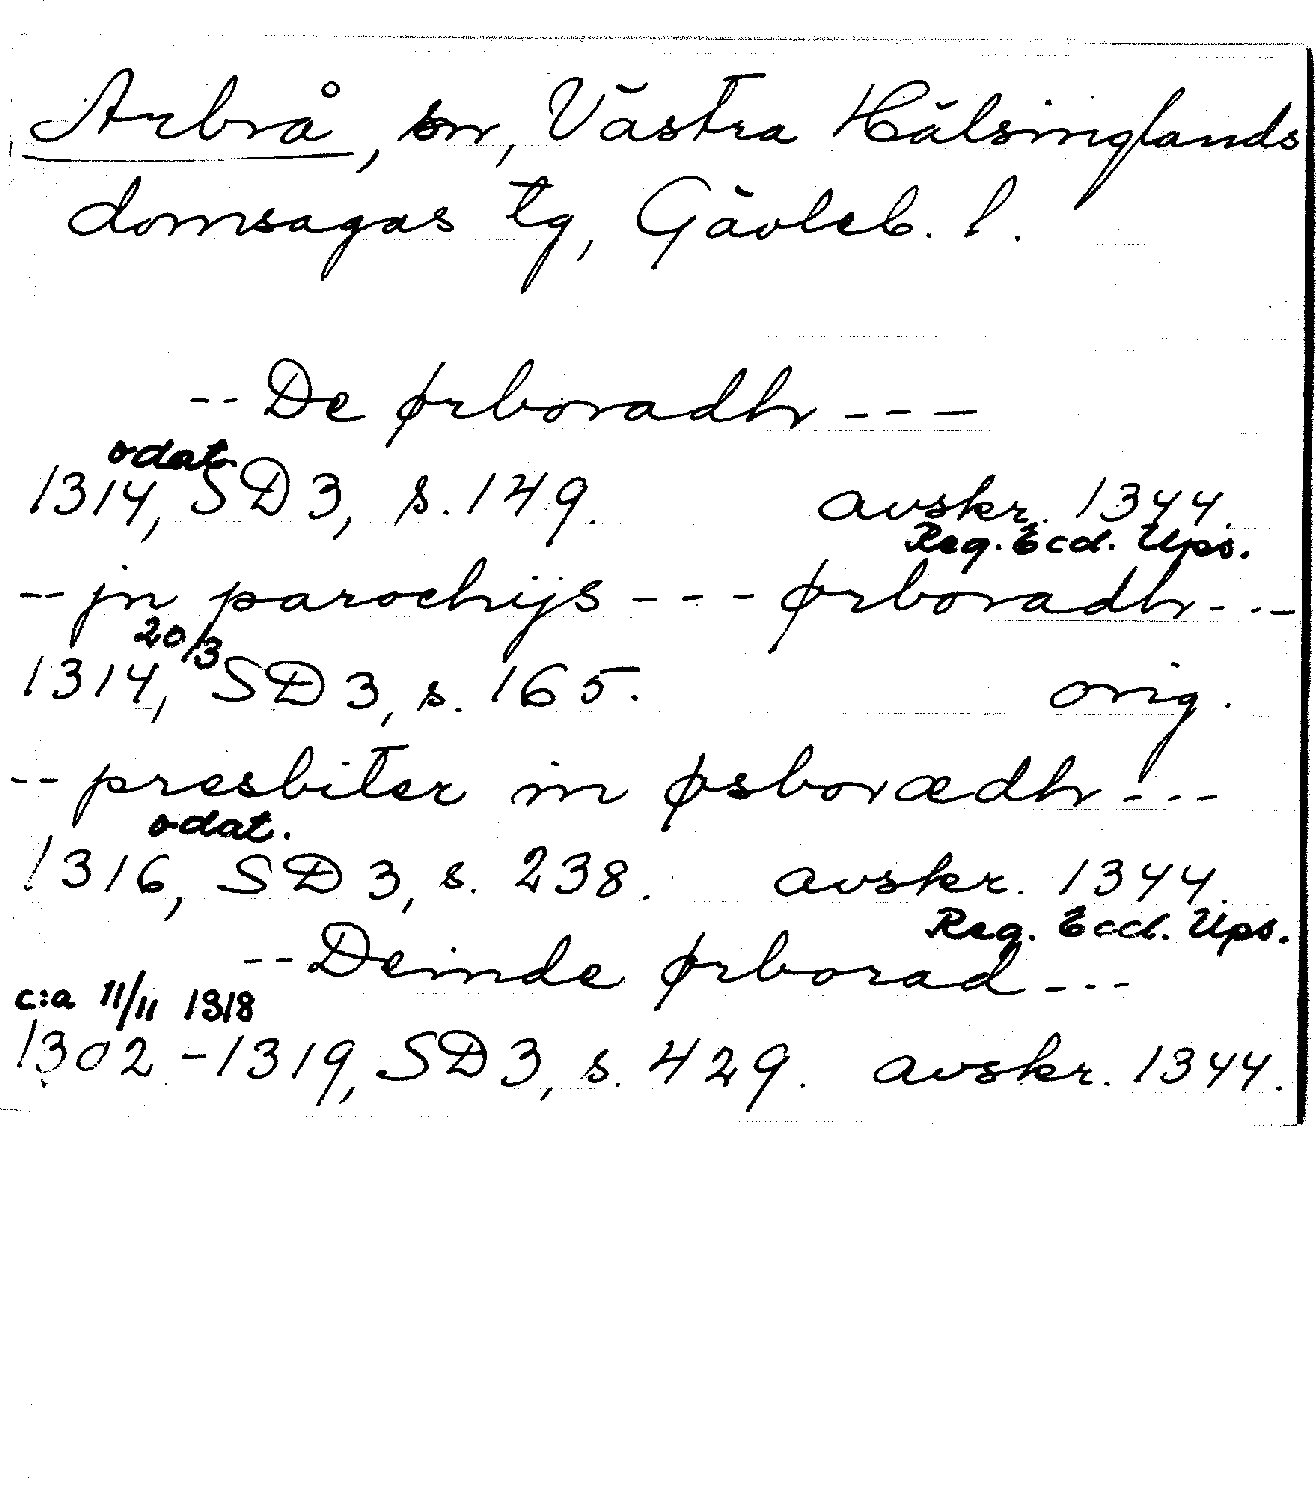 Arbrå, sn, Västra Hälsinglands
domsagas tg, Gävleb. l.
-- De ørboradh ---
odat.
1314, SD 3, s. 149. avskr. 1344.
Reg. Eccl. Ups.
-- jn parochijs --- ørboradh ---
20/3
1314, SD 3, s. 165. orig.
-- presbiter in øsborædh ---
odat.
1316, SD 3, s. 238. avskr. 1344.
Reg. Eccl. Ups.
-- Deinde ørborad ---
c:a 11/11 1318
1302-1319, SD 3, s. 429. avskr. 1344.